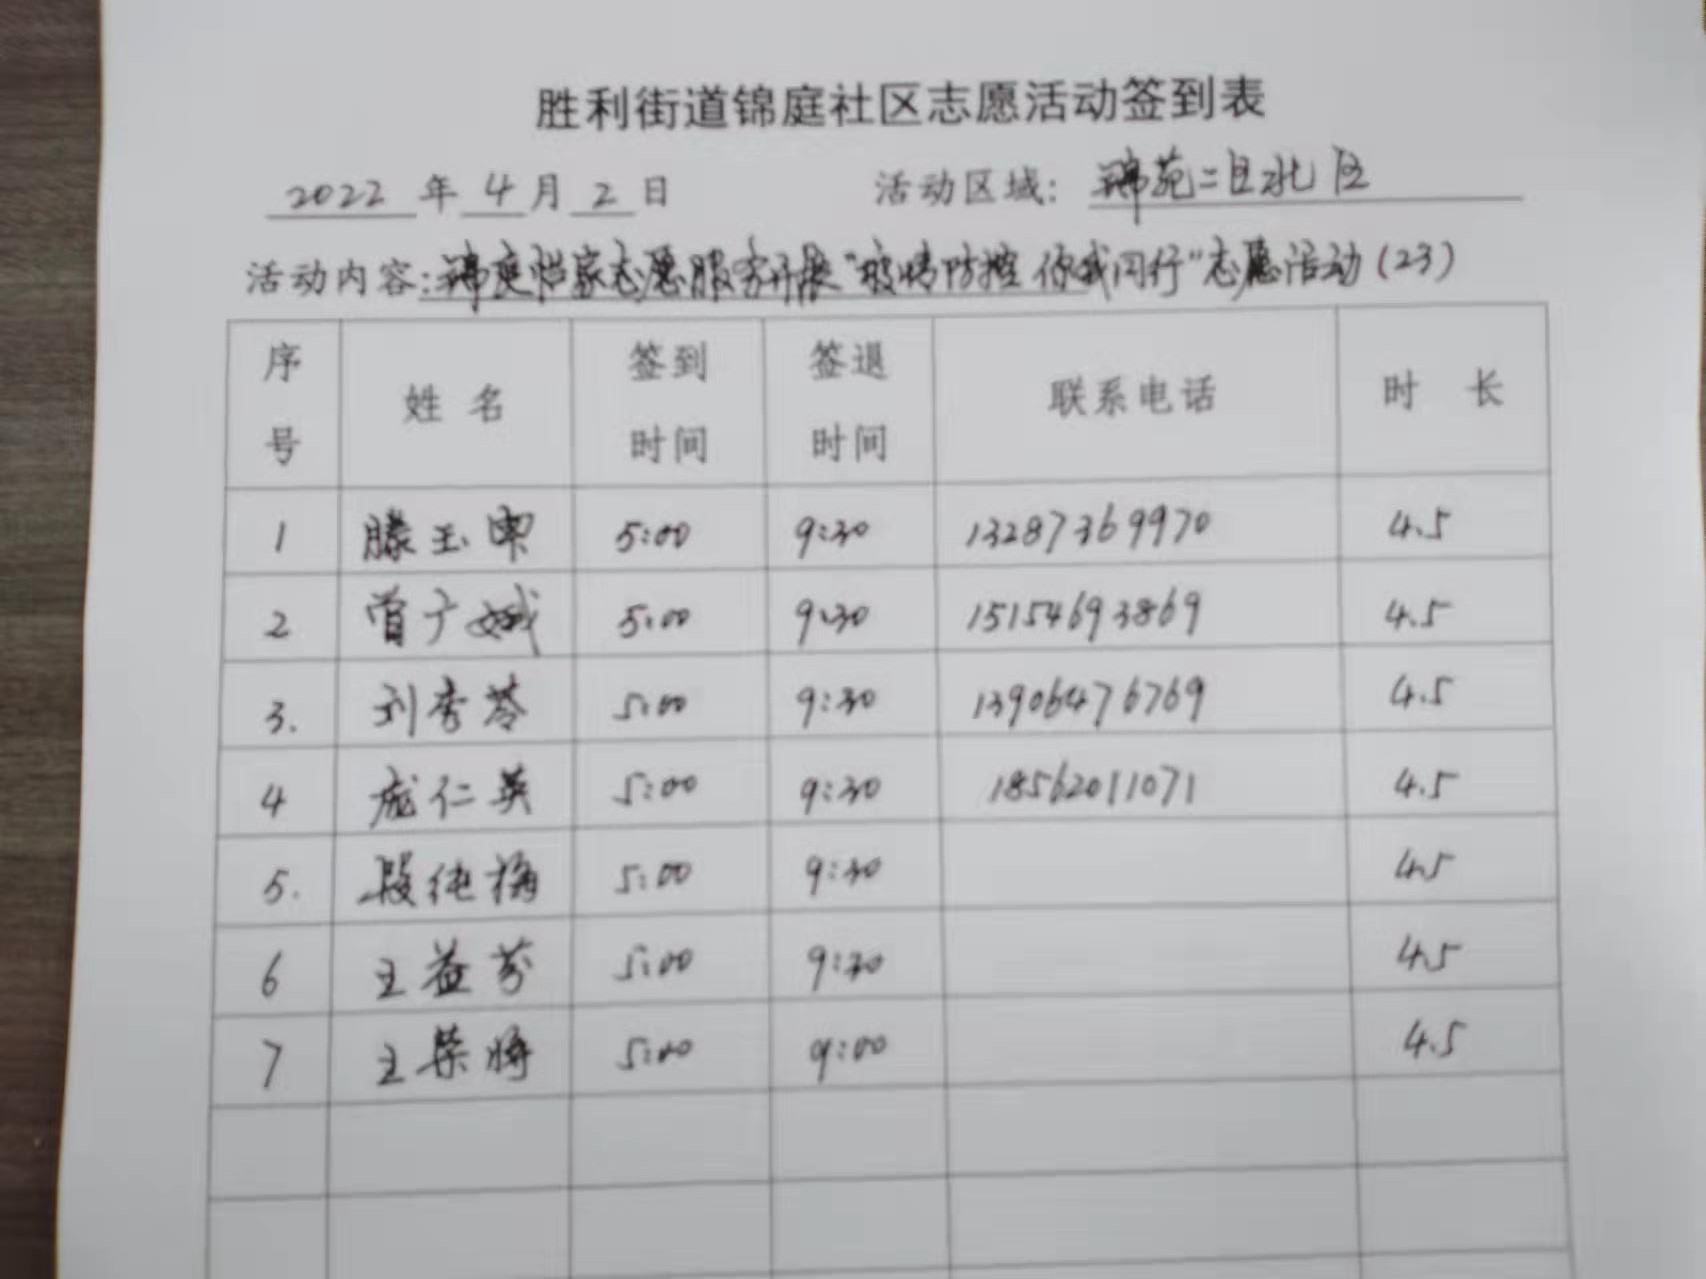 胜利街道锦庭社区志愿活动签到表
2022 年 4 月 2 日 活动区域: 锦苑二区北区
活动内容: 锦庭怡家志愿服务开展"疫情防控 你我同行"志愿活动(23)
序号 姓名 签到时间 签退时间 联系电话 时 长
1 滕玉 5:00 9:30 13287369970 4.5
2 曾广娥 5:00 9:30 15154693869 4.5
3. 刘秀苓 5:00 9:30 13906476769 4.5
4 庞仁英 5:00 9:30 18562011071 4.5
5. 段纯梅 5:00 9:30 4.5
6 王益芬 5:00 9:30 4.5
7 王荣 5:00 9:00 4.5